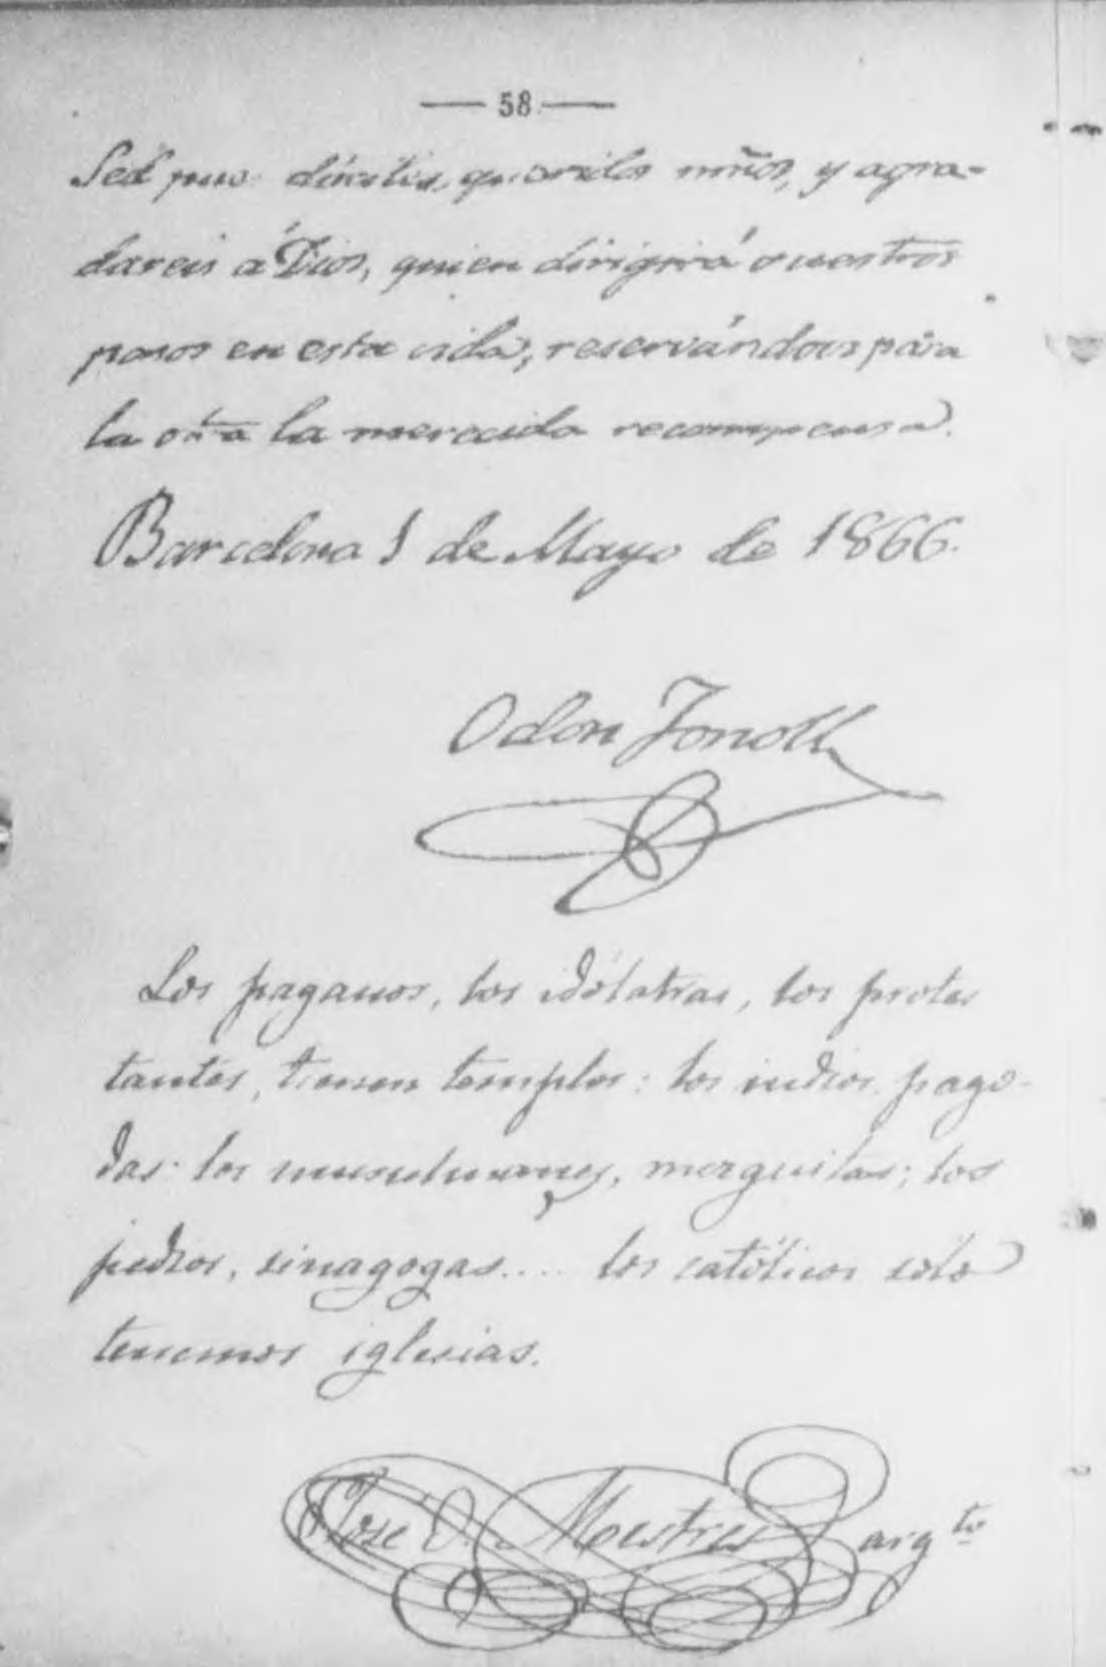 — 58 —
Sed pues dóciles, queridos niños, y agra-
dareis á Dios, quien dirigirá vuestros
pasos en esta vida, reservándoos para
la otra la merecida recompensa.
Barcelona 1 de Mayo de 1866.
Odon Fonoll
Los paganos, los idólatras, los protes
tantes, tienen templos: los indios pago-
das: los musulmanes, mezquitas; los
judios, sinagogas.... los católicos sólo
tenemos iglesias.
José O. Mestres arqto